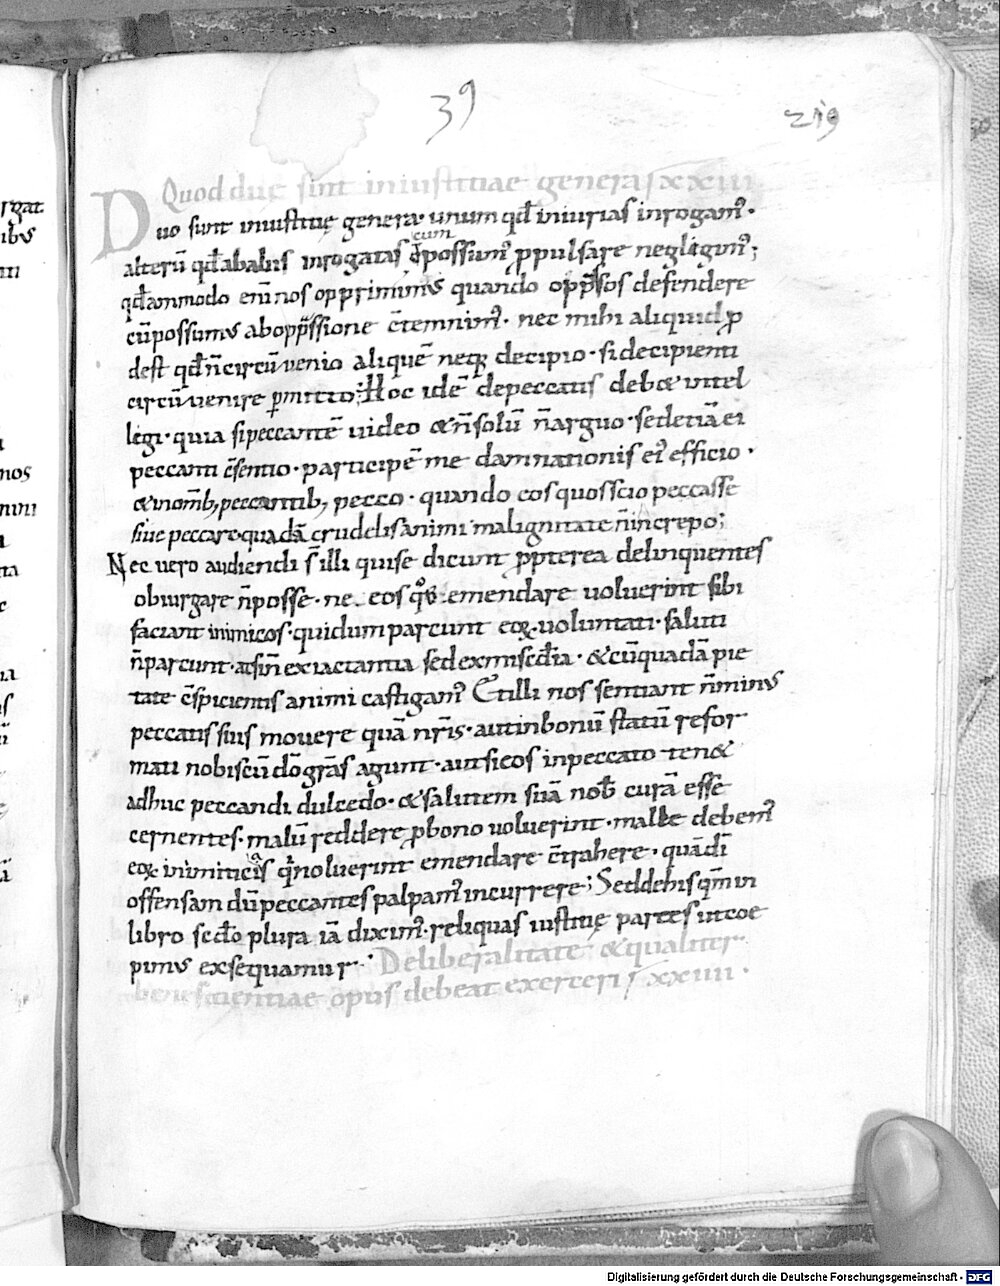 39
219
Quod duę sint iniustitiae genera / xxiii
Duo sunt iniustitię genera· unum qđ iniurias inrogamꝰ·
alterū qđ ab aliis inrogatas cum possumꝰ ꝓpulsare negligimꝰ;
qđammodo enī nos opprimimus quando opp̄ssos defendere
cū possumus ab opp̄ssione c̄temnimꝰ· nec mihi aliquid ꝓ
dest qđ n̄ circūuenio aliquē neq; decipio· si decipienti
circūuenire ꝑmitto; Hoc idē de peccatis debet intel
legi· quia si peccantē uideo & n̄ solū n̄ arguo· sed etiā ei
peccanti c̄sentio· participē me damnationis eiꝰ efficio·
& in om̄ib; peccantib; pecco· quando eos quos scio peccasse
siue peccare quadā crudelis animi malignitate n̄ increpo;
Nec uero audiendi s̄ illi qui se dicunt ꝓpterea delinquentes
obiurgare n̄ posse· ne eos emendare uoluerint sibi
faciant inimicos· qui dum parcunt eoꝝ uoluntati· saluti
n̄ parcunt· at si n̄ ex iactantia sed ex misc̄dia· & cū quadā pie
tate c̄spicientis animi castigamꝰ Et illi nos sentiant n̄ minus
peccatis suis mouere quā nr̄is· aut in bonū statū refor
mati nobiscū dō grās agunt· aut si eos in peccato tenet
adhuc peccandi dulcedo· & salutem suā nob̄ curā esse
cernentes· malū reddere ꝓ bono uoluerint· malle debemꝰ
eoꝝ inimicitias q̄ noluerint emendare c̄trahere· quā dī
offensam dū peccantes palpamꝰ incurrere; Sed de his qm̄ in
libro sc̄do plura iā diximꝰ· reliquas iustitię partes ut coe
pimus exsequamur· De liberalitate & qualiter
beneficientiae opus debeat exerceri / xxiiii·
Digitalisierung gefördert durch die Deutsche Forschungsgemeinschaft - DFG